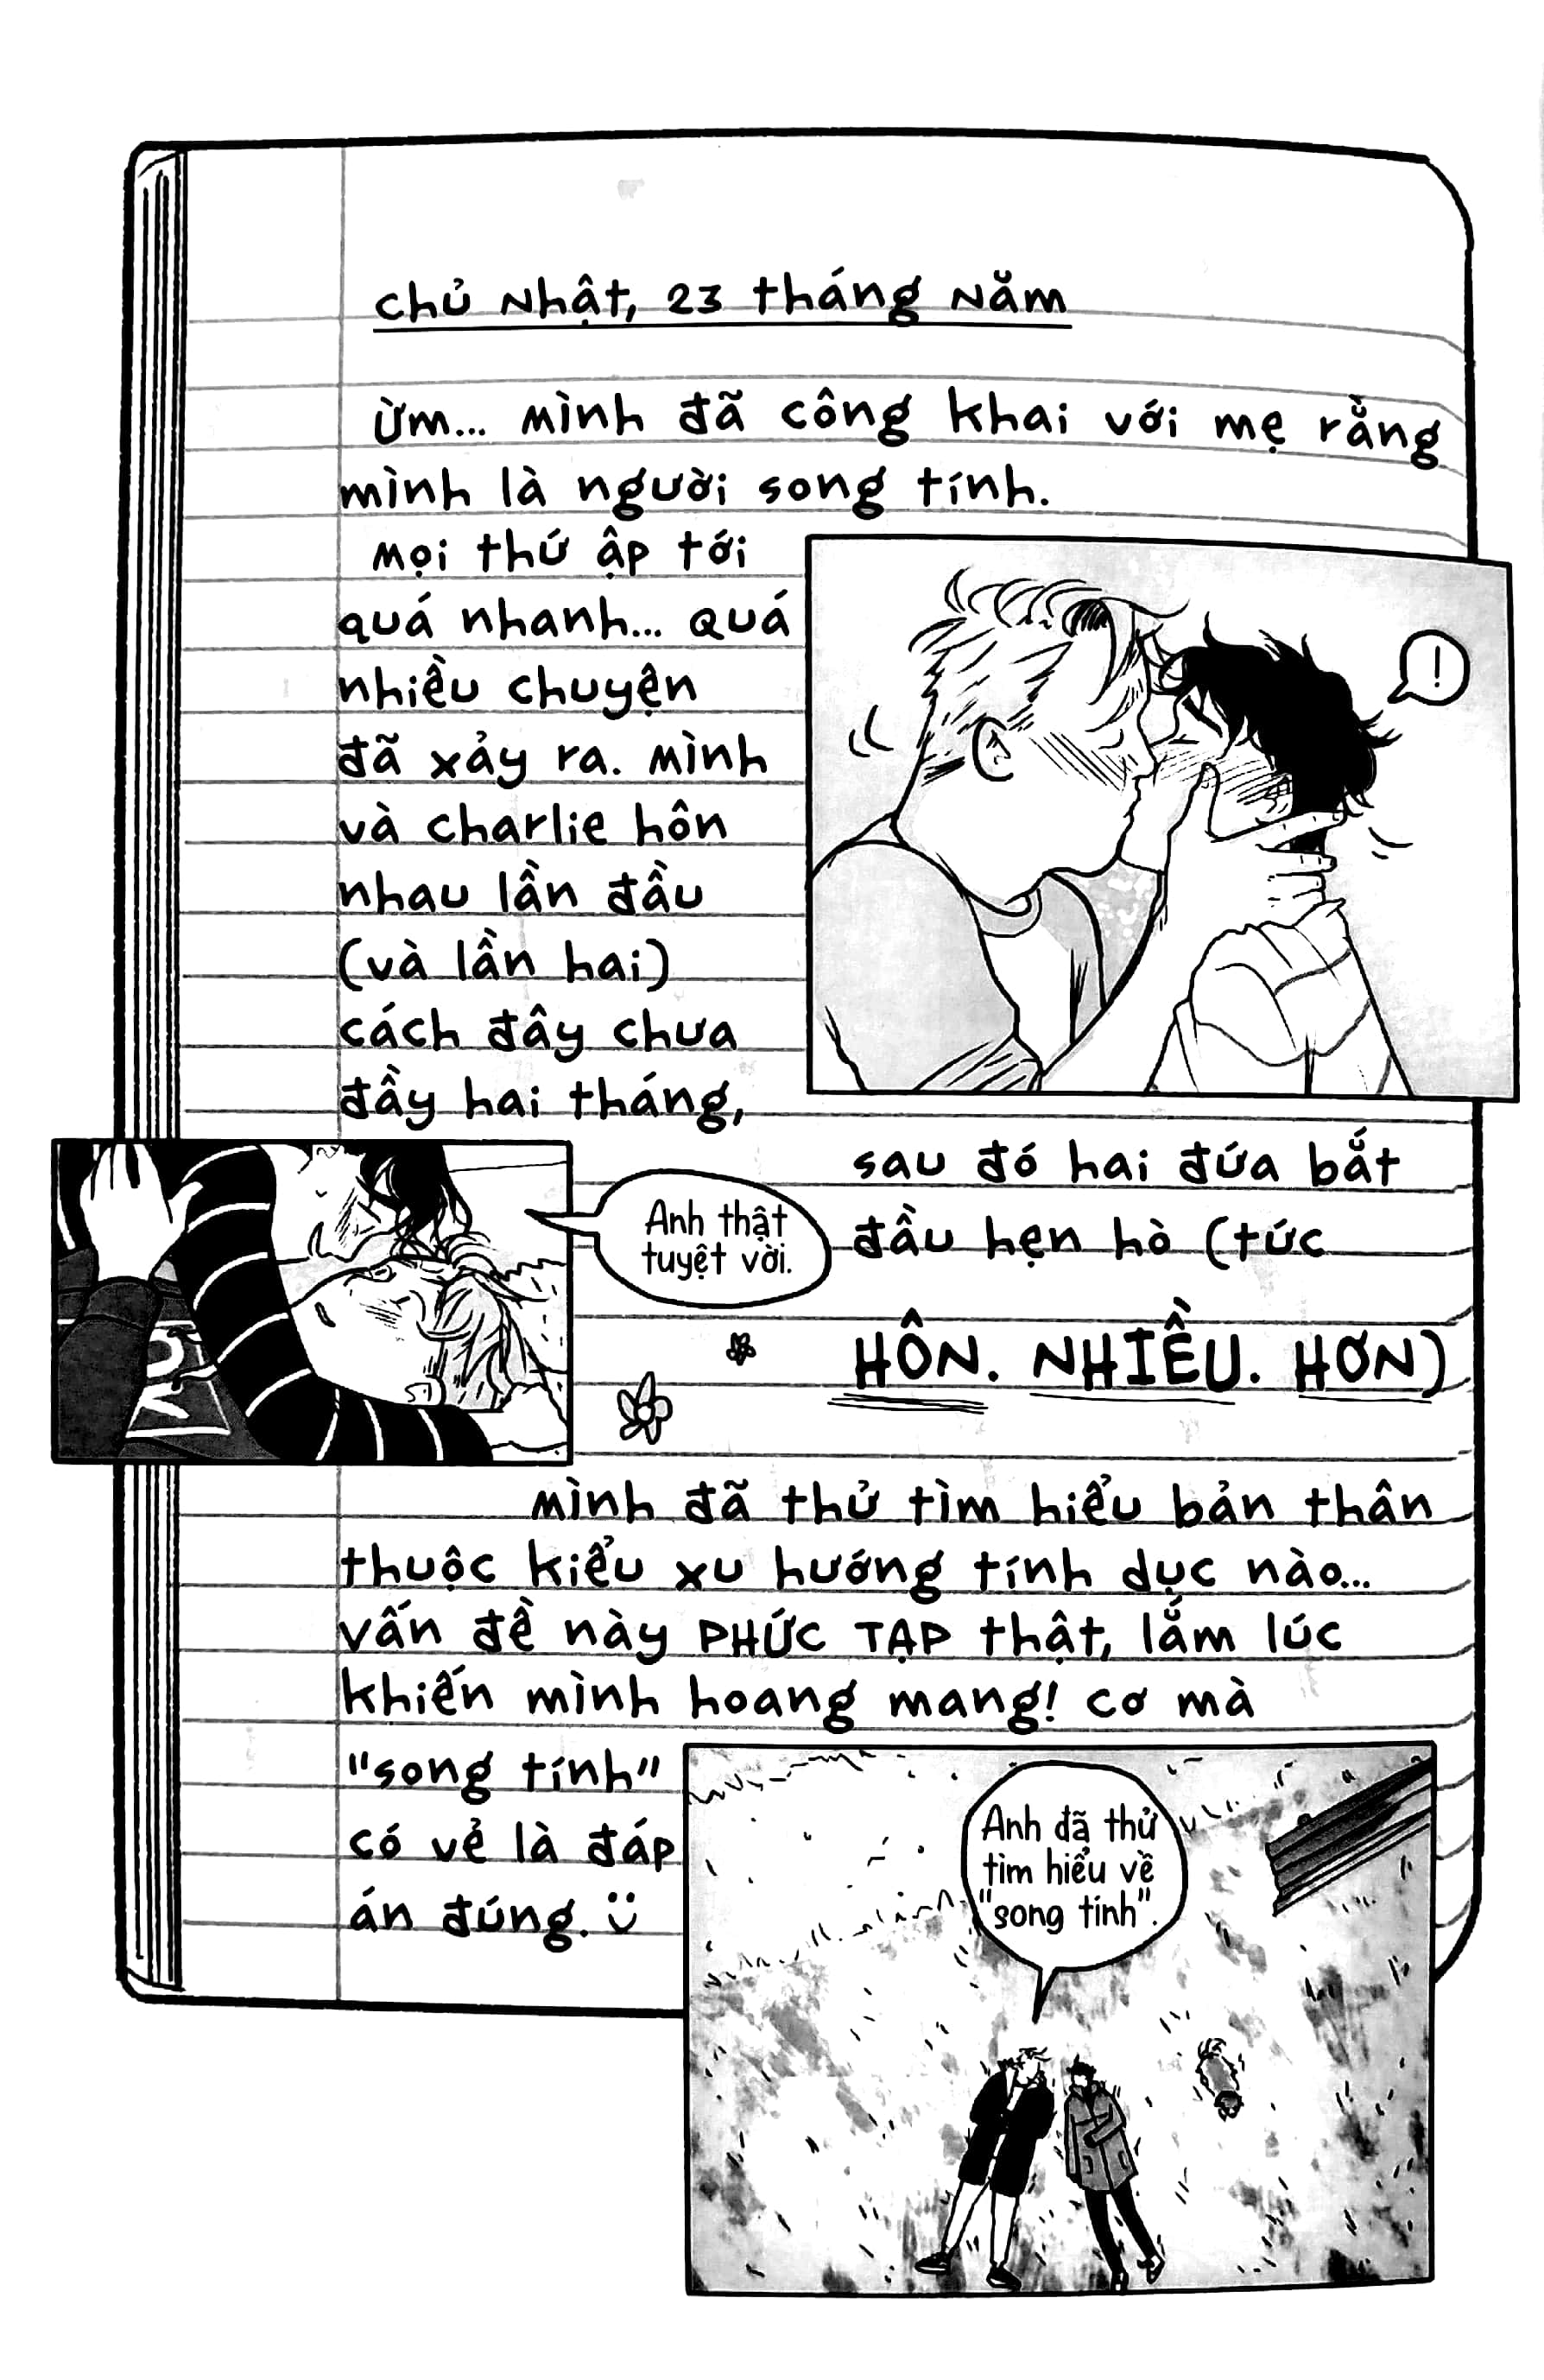 chủ Nhật, 23 tháng Năm
Ừm... mình đã công khai với mẹ rằng
mình là người song tính.
mọi thứ ập tới
quá nhanh... quá
nhiều chuyện
đã xảy ra. mình
và charlie hôn
nhau lần đầu
(và lần hai)
cách đây chưa
đầy hai tháng,
!
sau đó hai đứa bắt
đầu hẹn hò (tức
HÔN. NHIỀU. HƠN)
Anh thật
tuyệt vời.
mình đã thử tìm hiểu bản thân
thuộc kiểu xu hướng tính dục nào...
vấn đề này PHỨC TẠP thật, lắm lúc
khiến mình hoang mang! cơ mà
"song tính"
có vẻ là đáp
án đúng. :)
Anh đã thử
tìm hiểu về
"song tính".